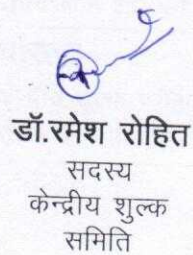 डॉ.रमेश रोहित
सदस्य
केन्द्रीय शुल्क
समिति